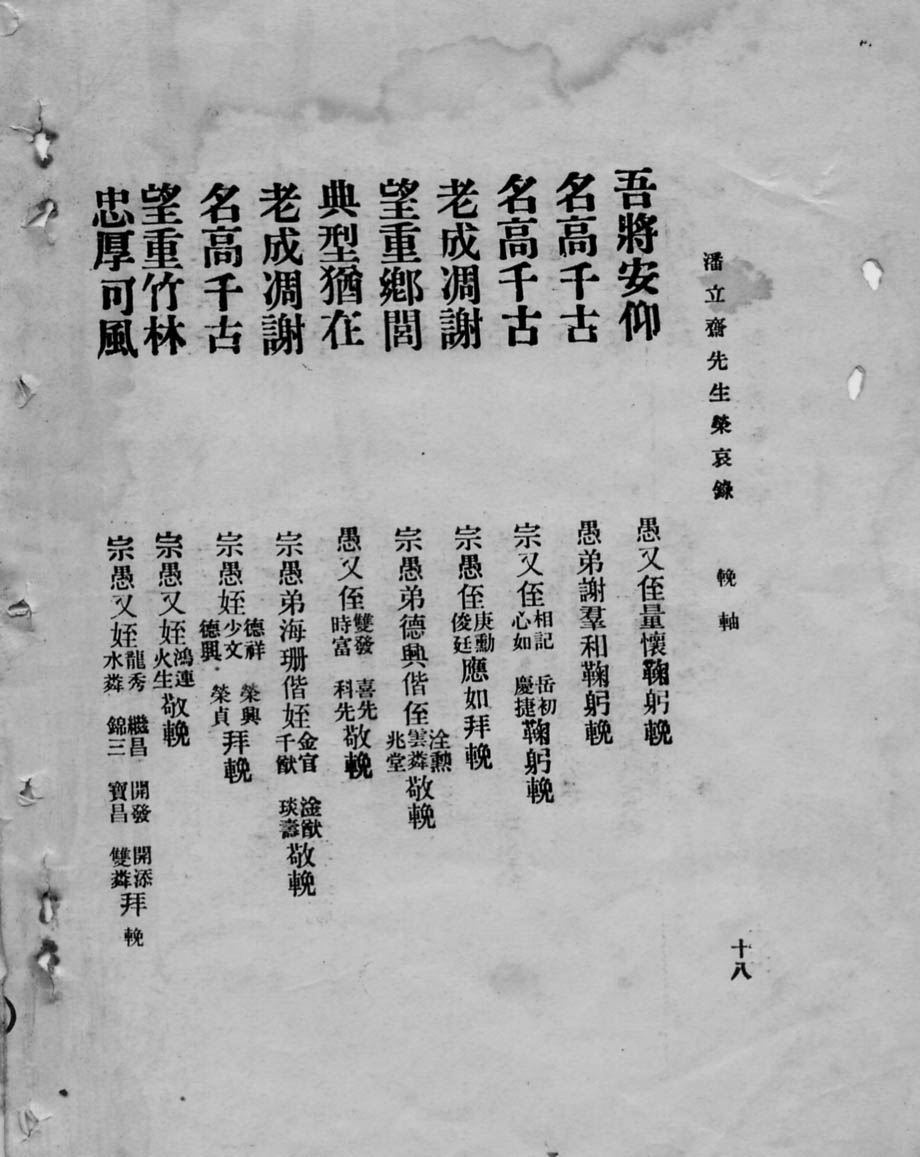 潘立齋先生榮哀錄　輓軸　十八
吾將安仰　愚又侄量懷鞠躬輓
名高千古　愚弟謝羣和鞠躬輓
名高千古　宗又侄相記　心如　岳初　慶捷鞠躬輓
老成凋謝　宗愚侄庚勳　俊廷　應如拜輓
望重鄉閭　宗愚弟德興偕侄洤勲　雲粦　兆堂敬輓
典型猶在　愚又侄雙發　時富　喜先　科先敬輓
老成凋謝　宗愚弟海珊偕姪金官　千猷　淦猷　琰壽敬輓
名高千古　宗愚姪德祥　少文　德興　榮興　榮貞拜輓
望重竹林　宗愚又姪鴻連　火生敬輓
忠厚可風　宗愚又姪龍秀　水粦　繼昌　錦三　開發　寶昌　開添　雙粦拜輓